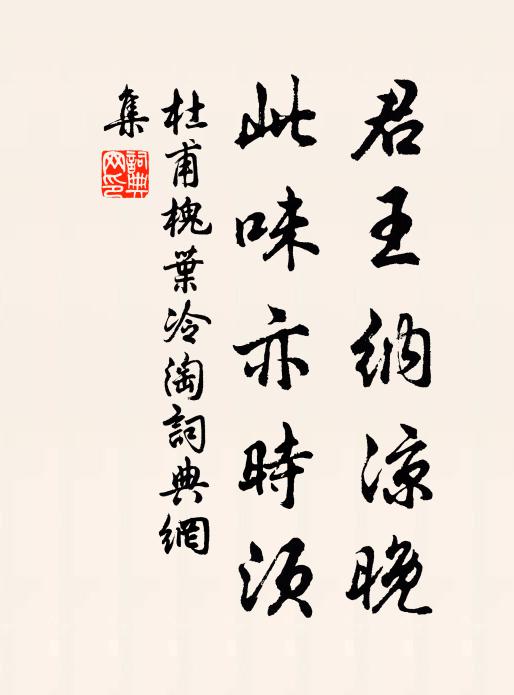 君王納涼晚
此味亦時須
杜甫槐葉冷淘詞典網
集
詞典网印